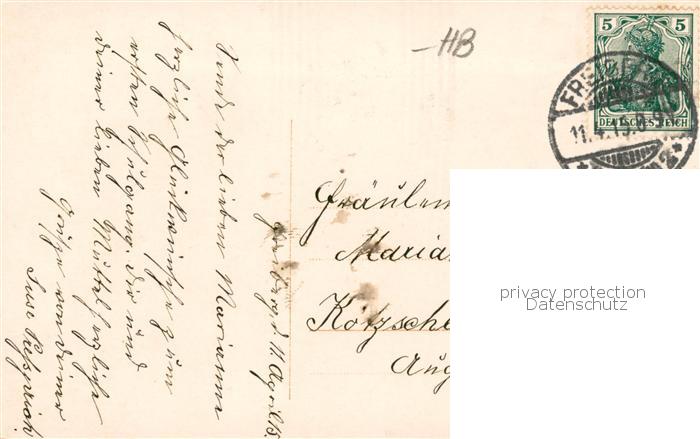 HB
5 5
DEUTSCHES REICH
FREIBERG
11.4.15.
Freiberg, d. 11. April 15.
Sende der lieben Marianne
herzliche Glückwünsche zum
ersten Schulgang. Dir und
deiner lieben Mutter herzliche
Grüße von deiner
Suse
Fräulein
Maria
Kötzsche
Aug
privacy protection
Datenschutz